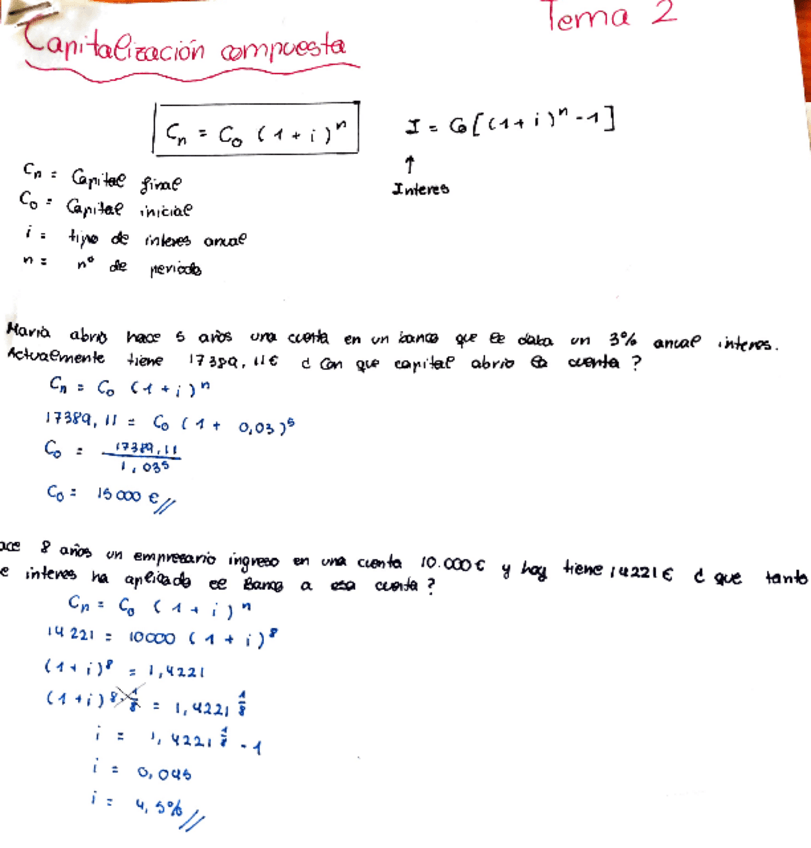 Tema 2
Capitalización compuesta
Cn = Co (1+i)^n
I = Co[(1+i)^n -1]
↑
Interes
Cn = Capital final
Co = Capital inicial
i = tipo de interes anual
n = nº de periodo
Maria abrio hace 5 años una cuenta en un banco que le daba un 3% anual interes.
Actualmente tiene 17389,11€ d Con que capital abrio la cuenta?
Cn = Co (1+i)^n
17389,11 = Co (1+ 0,03)^5
Co = 17389,11 / 1,03^5
Co = 15000 €//
ace 8 años un empresario ingreso en una cuenta 10.000€ y hoy tiene 14221€ d que tanto
e interes ha aplicado el Banco a esa cuenta?
Cn = Co (1+i)^n
14221 = 10000 (1+i)^8
(1+i)^8 = 1,4221
(1+i)^8·1/8 = 1,4221^1/8
i = 1,4221^1/8 -1
i = 0,045
i = 4,5%//